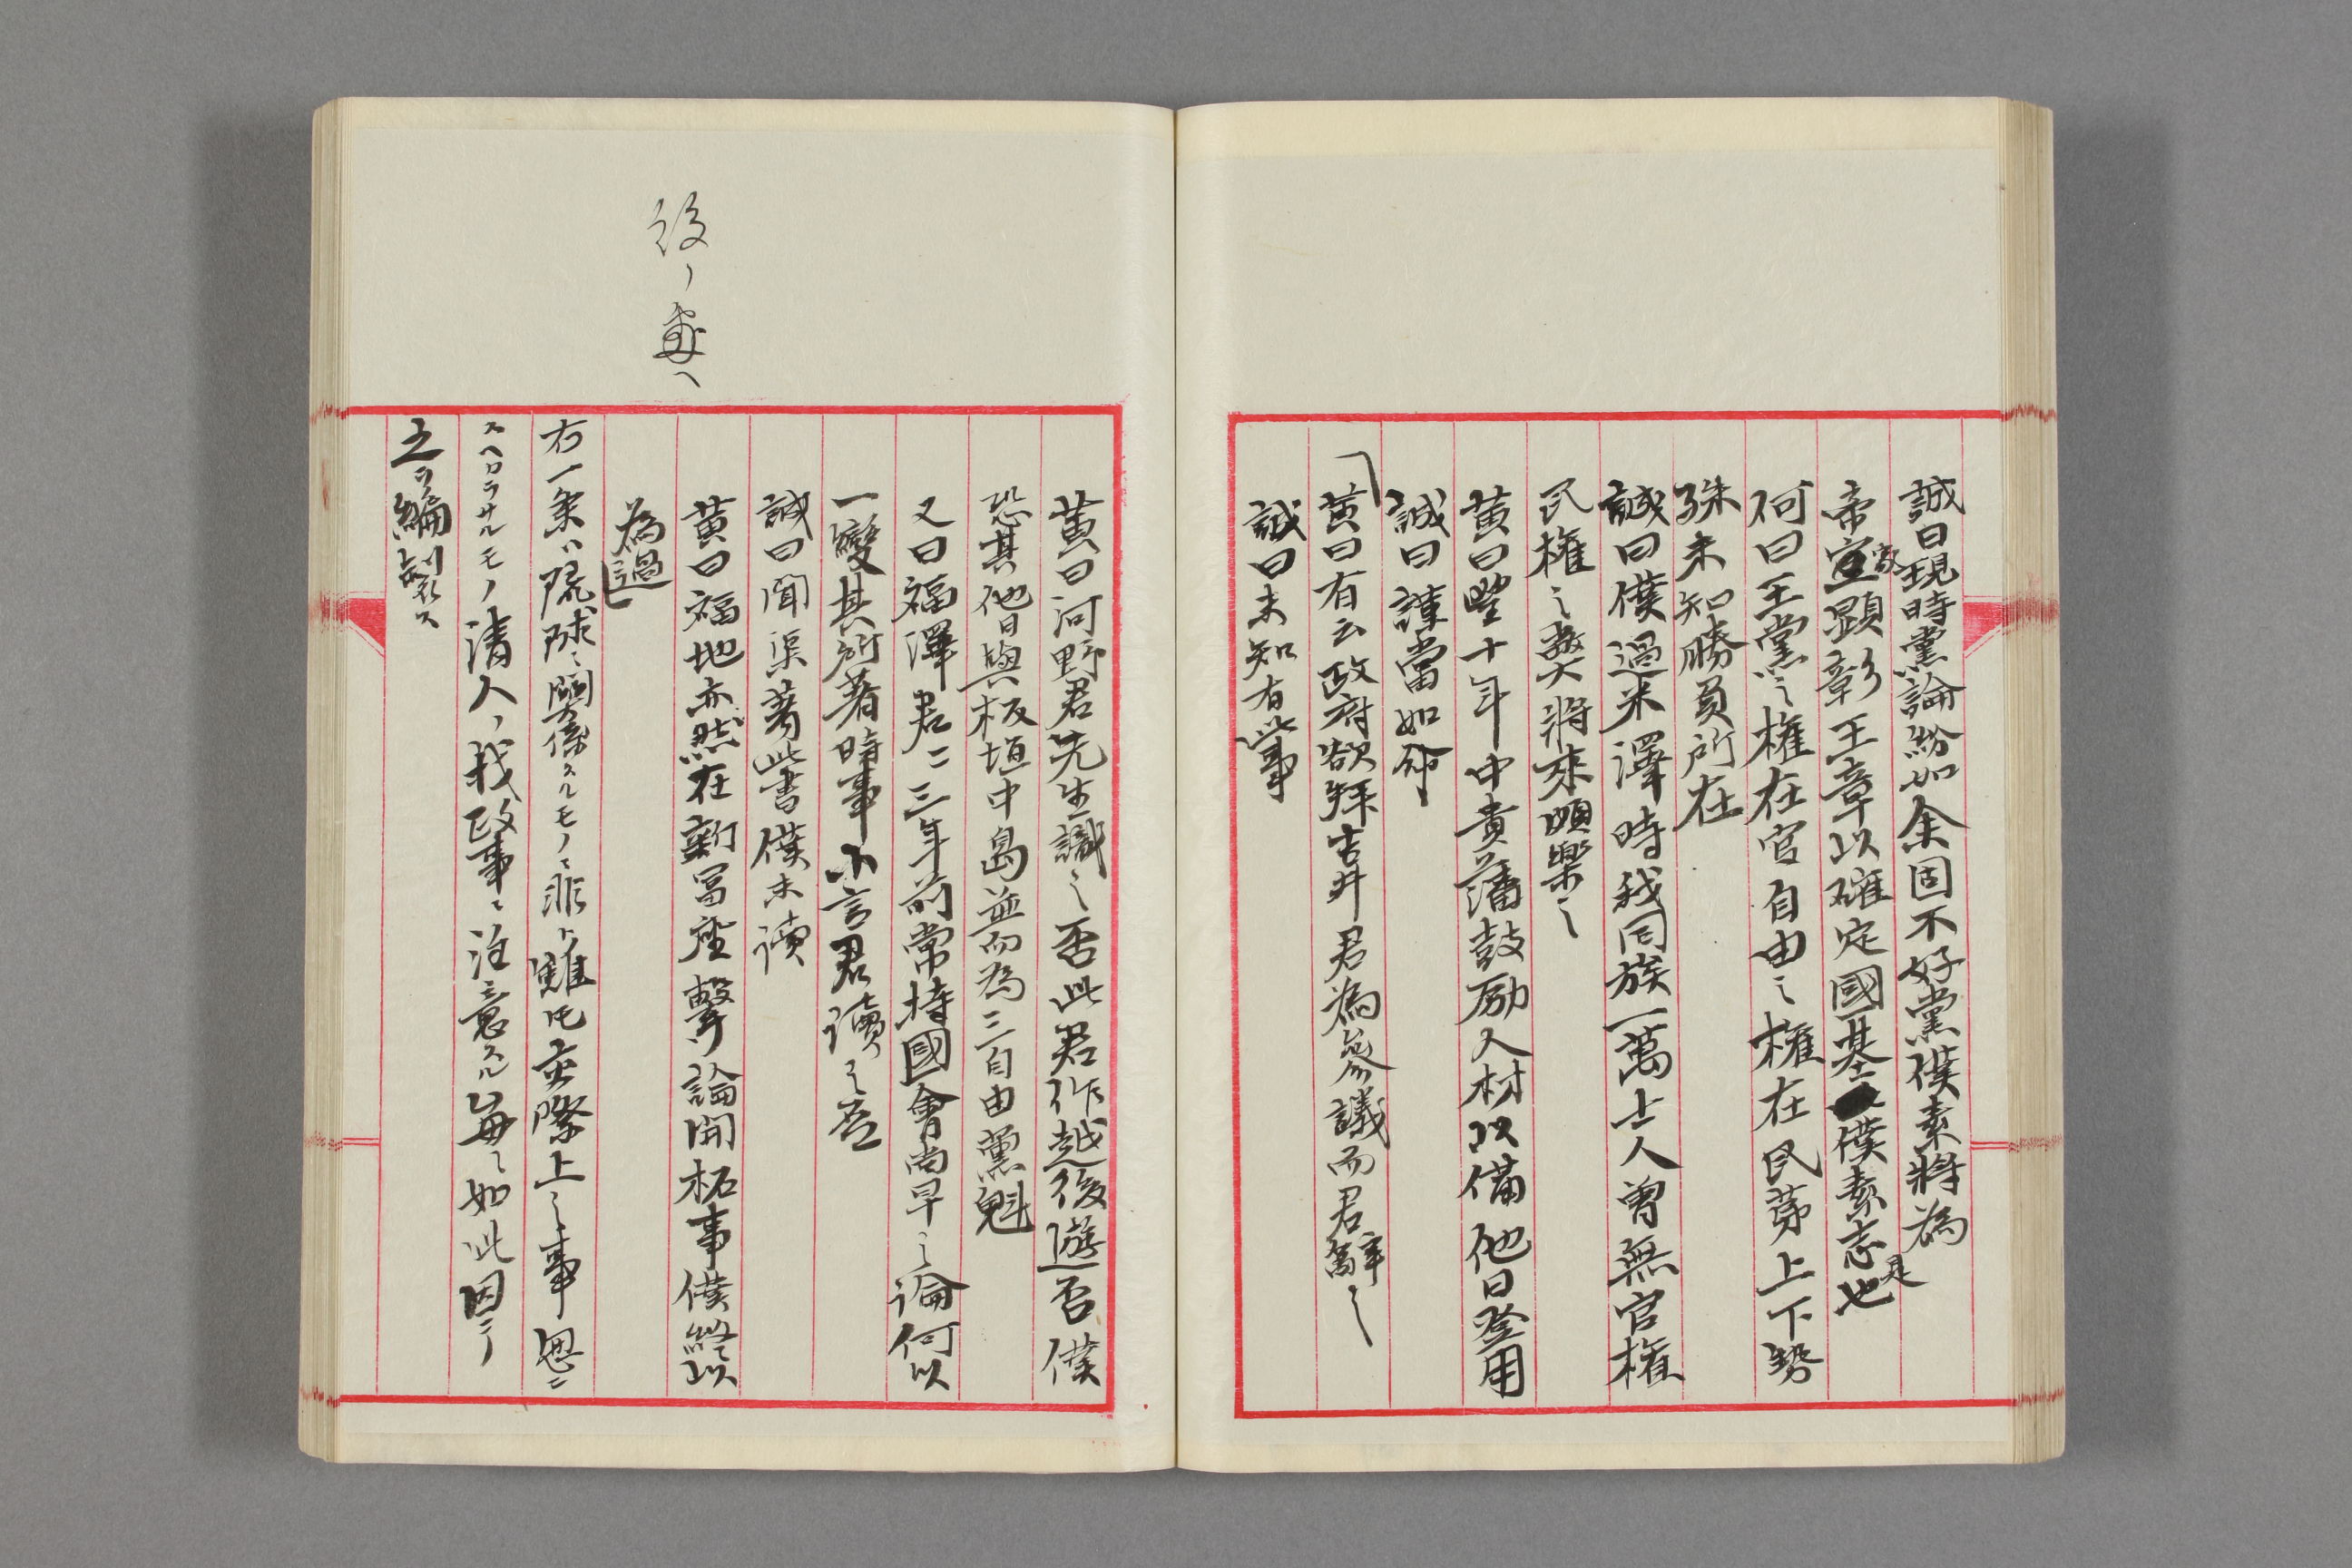 誠曰現時黨論紛如余固不好黨僕素將為
帝室顯彰王章以確定國基僕素志也
家
是
何曰王黨之權在官自由之權在民第上下勢
殊未知勝負所在
誠曰僕過米澤時我同族一萬士人曾無官權
民權之弊將來頗樂之
黃曰豐十年中貴藩鼓勵人材以備他日登用
誠曰謹當如命
黃曰有云政府欲拜吉井君為參議而君辭之
誠曰未知有此事
後ノ
黃曰河野君先生識之否此君作越後遊否僕
恐其他日與板垣中島並而為三自由黨魁
又曰福澤君二三年前常持國會尚早之論何以
一變其所著時事小言君讀之否
誠曰聞渠著此書僕未讀
黃曰福地亦然在新冨座擊論開柘事僕終以
為過
右一条ハ琉球ニ関係スルモノニ非ト雖モ交際上之事忽ニ
スヘカラサルモノ清人ノ我政事ニ注意スル毎ニ如此因テ
之ヲ編製ス